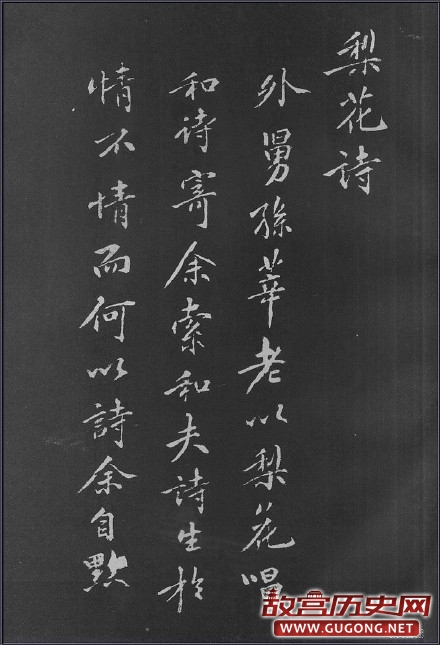 梨花诗
外舅孫莘老以梨花唱
和诗寄余索和夫詩生於
情不情而何以詩余自點
故宫历史网
WWW.GUGONG.NET